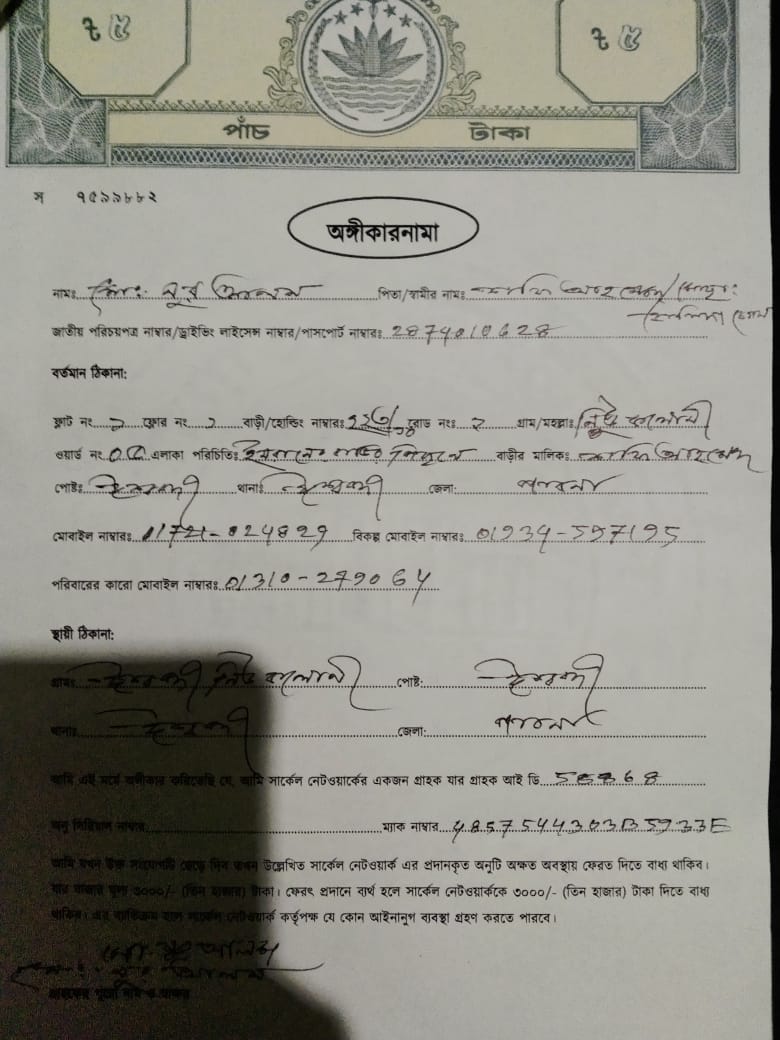 ৳ ৫ ৳ ৫
পাঁচ টাকা
স ৭৫৯৯৮৮২
অঙ্গীকারনামা
নামঃ মোঃ নুর আলম পিতা/স্বামীর নামঃ
জাতীয় পরিচয়পত্র নাম্বার/ড্রাইভিং লাইসেন্স নাম্বার/পাসপোর্ট নাম্বারঃ 2874010628
বর্তমান ঠিকানা:
ফ্লাট নং ফ্লোর নং বাড়ী/হোল্ডিং নাম্বারঃ রোড নংঃ ২ গ্রাম/মহল্লাঃ নিউ কলোনী
ওয়ার্ড নং 05 এলাকা পরিচিতিঃ বাড়ীর মালিকঃ
পোষ্টঃ ঈশ্বরদী থানাঃ ঈশ্বরদী জেলা: পাবনা
মোবাইল নাম্বারঃ 01721-024829 বিকল্প মোবাইল নাম্বারঃ 01934-597195
পরিবারের কারো মোবাইল নাম্বারঃ 01310-279064
স্থায়ী ঠিকানা:
গ্রামঃ ঈশ্বরদী নিউ কলোনী পোষ্ট: ঈশ্বরদী
থানাঃ ঈশ্বরদী জেলা: পাবনা
আমি এই মর্মে অঙ্গীকার করিতেছি যে, আমি সার্কেল নেটওয়ার্কের একজন গ্রাহক যার গ্রাহক আই ডি
অনু সিরিয়াল নাম্বার ম্যাক নাম্বার 4857544303B5933E
আমি যখন উক্ত সংযোগটি ছেড়ে দিব তখন উল্লেখিত সার্কেল নেটওয়ার্ক এর প্রদানকৃত অনুটি অক্ষত অবস্থায় ফেরত দিতে বাধ্য থাকিব।
যার বাজার মূল্য ৩০০০/- (তিন হাজার) টাকা। ফেরৎ প্রদানে ব্যর্থ হলে সার্কেল নেটওয়ার্ককে ৩০০০/- (তিন হাজার) টাকা দিতে বাধ্য
থাকিব। এর ব্যতিক্রম হলে সার্কেল নেটওয়ার্ক কর্তৃপক্ষ যে কোন আইনানুগ ব্যবস্থা গ্রহণ করতে পারবে।
মোঃ নুর আলম
মোঃ নুর আলম
গ্রাহকের পুরো নাম ও স্বাক্ষর